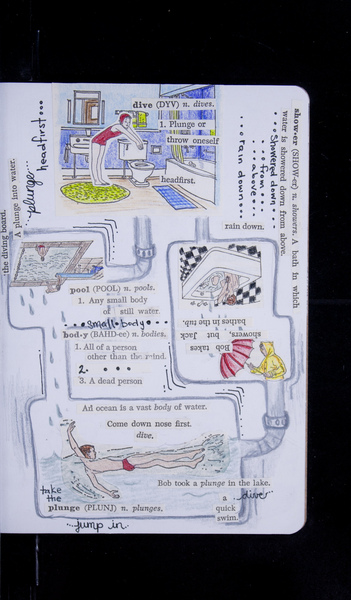 dive (DYV) n. dives.
1. Plunge or
throw oneself
headfirst.
plunge...
headfirst...
the diving board.
A plunge into water.
show-er (SHOW-er) n. showers. A bath in which
water is showered down from above.
...showered down...
...from...
...above...
...rain down...
rain down.
pool (POOL) n. pools.
1. Any small body
of still water.
...small body...
bod-y (BAHD-ee) n. bodies.
1. All of a person
other than the mind.
2. ...
3. A dead person
Bob takes
showers, but Jack
bathes in the tub.
An ocean is a vast body of water.
Come down nose first.
dive.
Bob took a plunge in the lake.
take
the
plunge (PLUNJ) n. plunges.
...jump in...
a
quick
swim.
dive